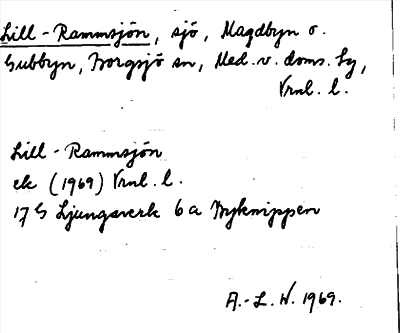 Lill-Rammsjön, sjö, Magdbyn o.
Gubbyn, Borgsjö sn, Med. v. doms. lg,
Vrnl. l.
Lill-Rammsjön
ek (1969) Vrnl. l.
17 G Ljungaverk 6 a Myknippen
A.-L. N. 1969.